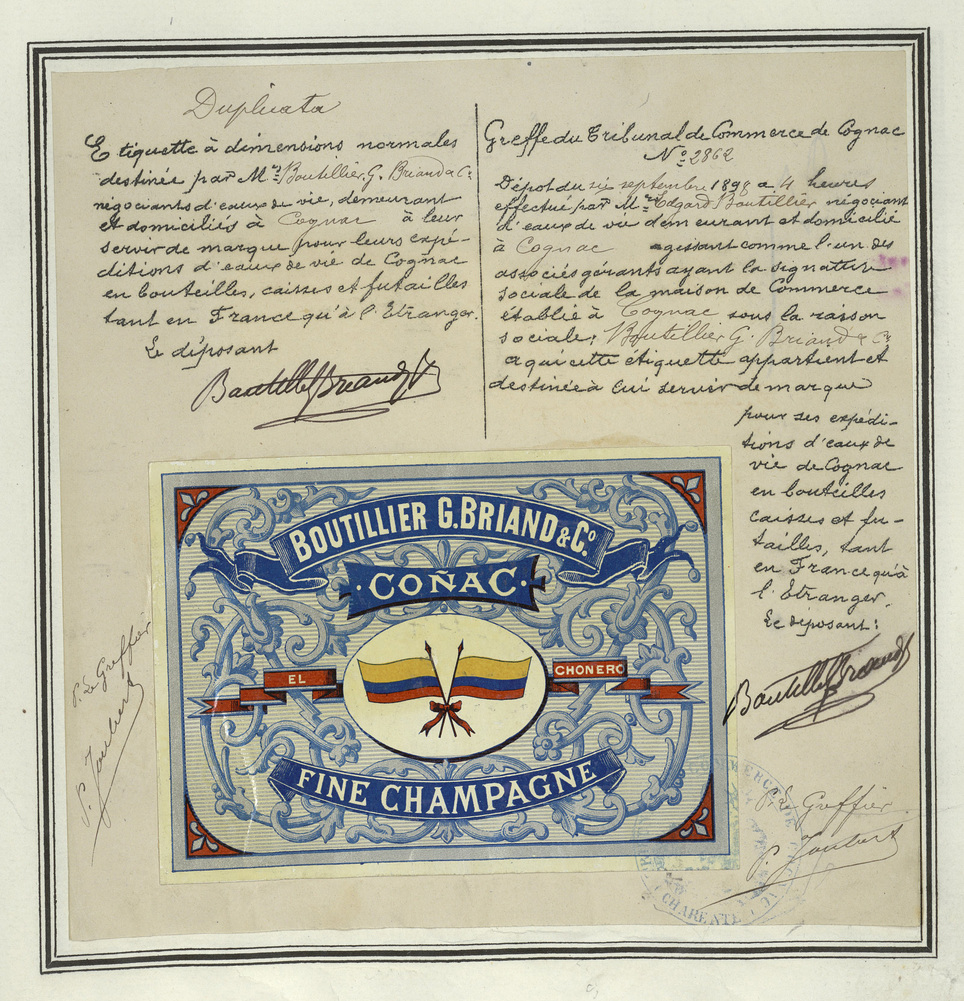 Duplicata
Etiquette à dimensions normales
destinée par Mrs Boutillier, G. Briand & Co
négociants d'eaux de vie, demeurant
et domiciliés à Cognac à leur
servir de marque pour leurs expé-
ditions d'eaux de vie de Cognac
en bouteilles, caisses et futailles
tant en France qu'à l'Etranger.
Le déposant
Boutillier Briand & Co
Greffe du Tribunal de Commerce de Cognac
No 2862
Dépôt du six septembre 1898 a 4 heures
effectué par Mr Edgard Boutillier négociant
d'eaux de vie demeurant et domicilié
à Cognac agissant comme l'un des
associés gérants ayant la signature
sociale de la maison de Commerce
établie à Cognac sous la raison
sociale: Boutillier G. Briand & Co
a qui cette étiquette appartient et
destinée à lui servir de marque
pour ses expédi-
tions d'eaux de
vie de Cognac
en bouteilles
caisses et fu-
tailles, tant
en France qu'à
l'Etranger.
Le déposant:
Boutillier Briand
P. Le Greffier
P. Joubert
BOUTILLIER G. BRIAND & Co.
·COÑAC·
EL CHONERO
FINE CHAMPAGNE
P. Le Greffier
P. Joubert
COMMERCE DE
CHARENTE